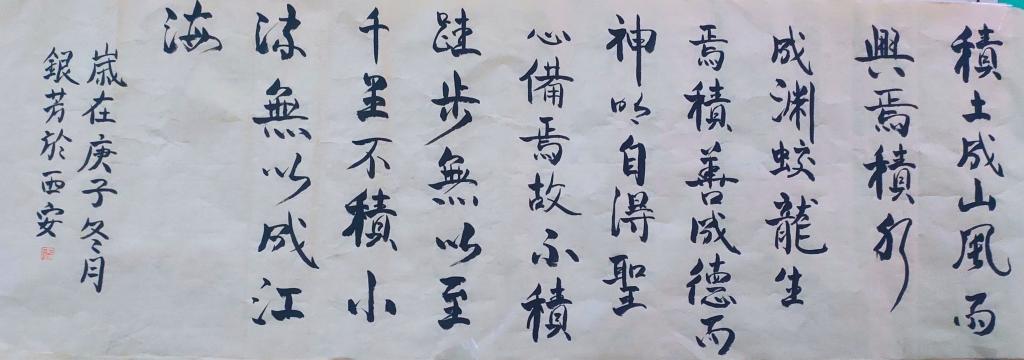 積土成山風雨
興焉積水
成渊蛟龍生
焉積善成德而
神明自得聖
心備焉故不積
跬步無以至
千里不積小
流無以成江
海
歲在庚子冬月
銀芳於西安